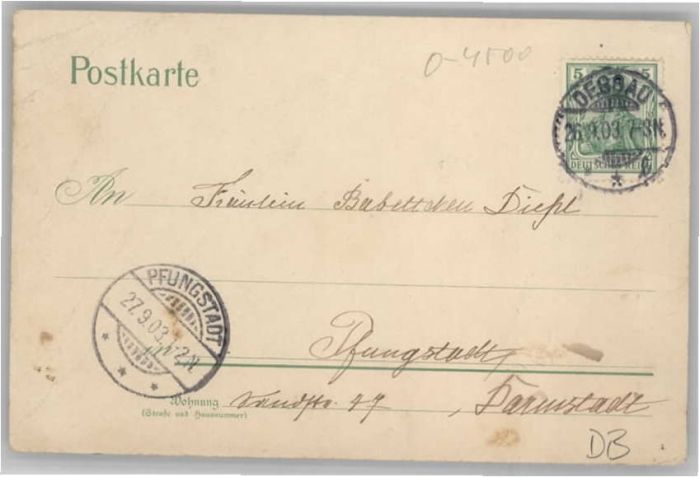 Postkarte
0-4500
5 5
DESSAU
26.9.03.7-8N.
DEUTSCHES REICH
An Fräulein Babettchen Diehl
PFUNGSTADT
27.9.03. 1-2N.
Pfungstadt
Wohnung Sandstr. 47, Darmstadt
(Straße und Hausnummer)
DB